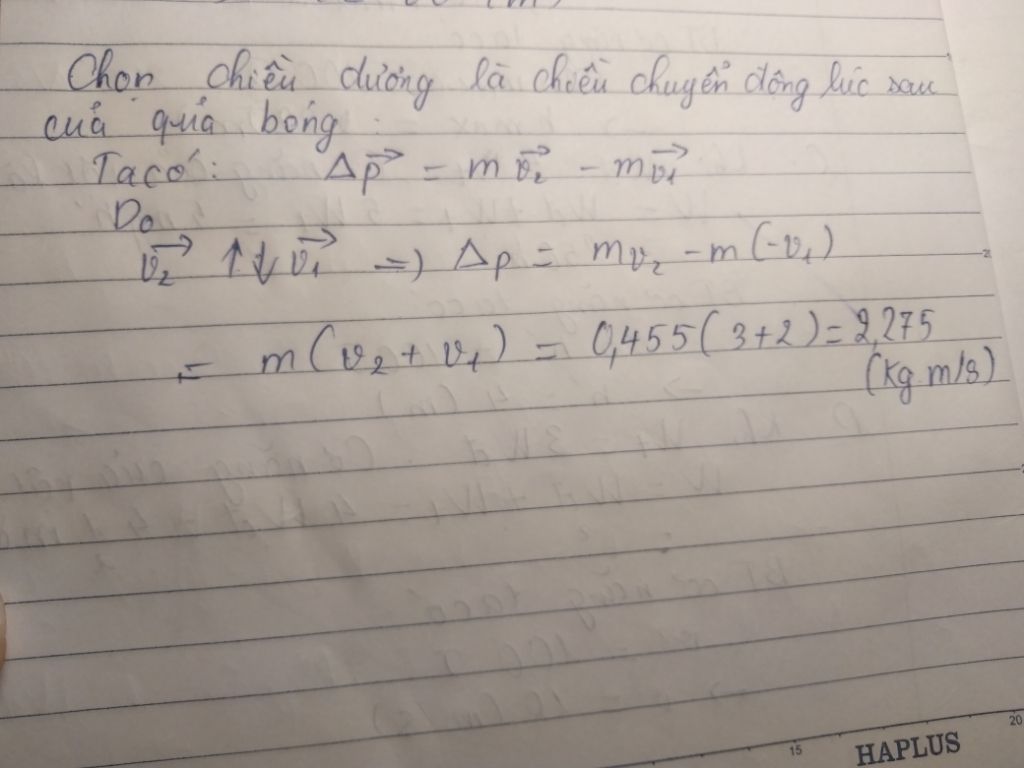 Chọn chiều dương là chiều chuyển động lúc sau
của quả bóng :
Ta có : Δp⃗ = m v⃗₂ - m v⃗₁
Do
v⃗₂ ↑↓ v⃗₁ => Δp = mv₂ - m(-v₁)
= m(v₂ + v₁) = 0,455(3+2) = 2,275
(kg m/s)
15
20
HAPLUS